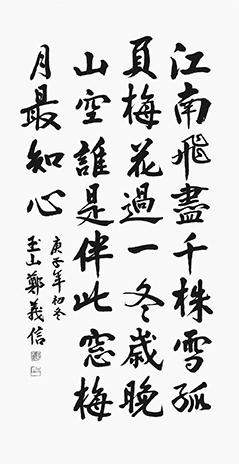 江南飛盡千株雪孤
負梅花過一冬歲晚
山空誰是伴此窓梅
月最知心
庚子年初冬
玉山鄭義信